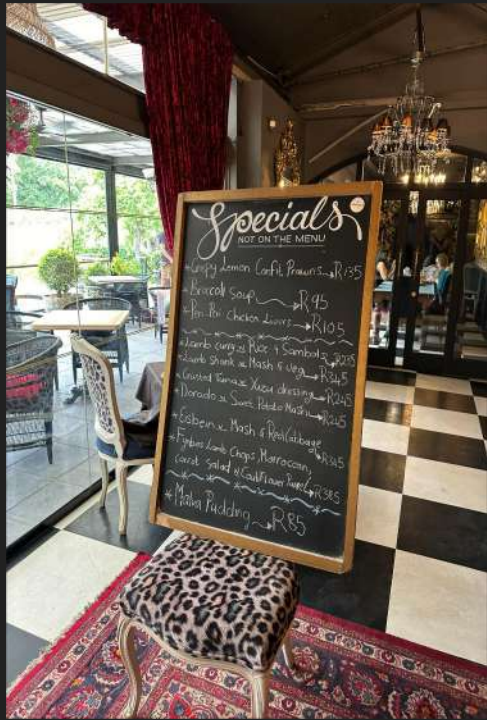 Specials
NOT ON THE MENU
Crispy Lemon Confit Prawns R135
Broccoli Soup R95
Peri Peri Chicken Livers R105
Lamb curry Rice & Sambals R295
Lamb Shank Mash & Veg R345
Crusted Tuna Yuzu dressing R245
Dorado Sweet Potato Mash R245
Eisbein Mash & Red Cabbage
Lamb Chops, Moroccan,
carrot Salad Cauliflower R385
Malva Pudding R85